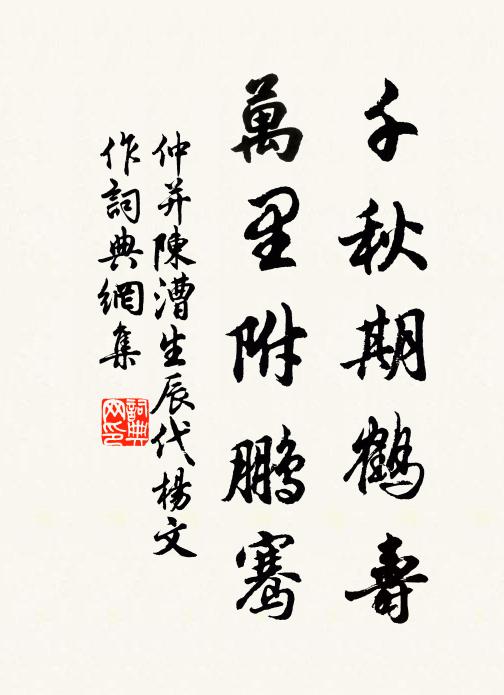 千秋期鶴壽
萬里附鵬騫
仲并陳漕生辰代楊文
作詞典網集
詞典網印